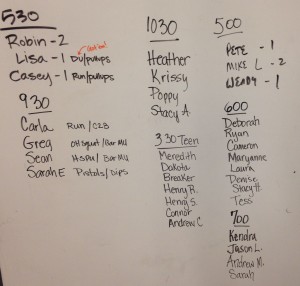 530
Robin - 2
Lisa - 1 DU/pumps
Casey - 1 Run/pumps
930
Carla Run/C2B
Greg OH Squat/Bar MU
Sean HSPU/Bar MU
Sarah E Pistols/Dips
1030
Heather
Krissy
Poppy
Stacy A.
330 Teen
Meredith
Dakota
Breaker
Henry R.
Henry S.
Connor
Andrew C
500
PETE - 1
MIKE L - 2
WENDY - 1
600
Deborah
Ryan
Cameron
Maryanne
Laura
Denise
Stacy H.
Tess
700
Kendra
Jason L.
Andrew M.
Sarah